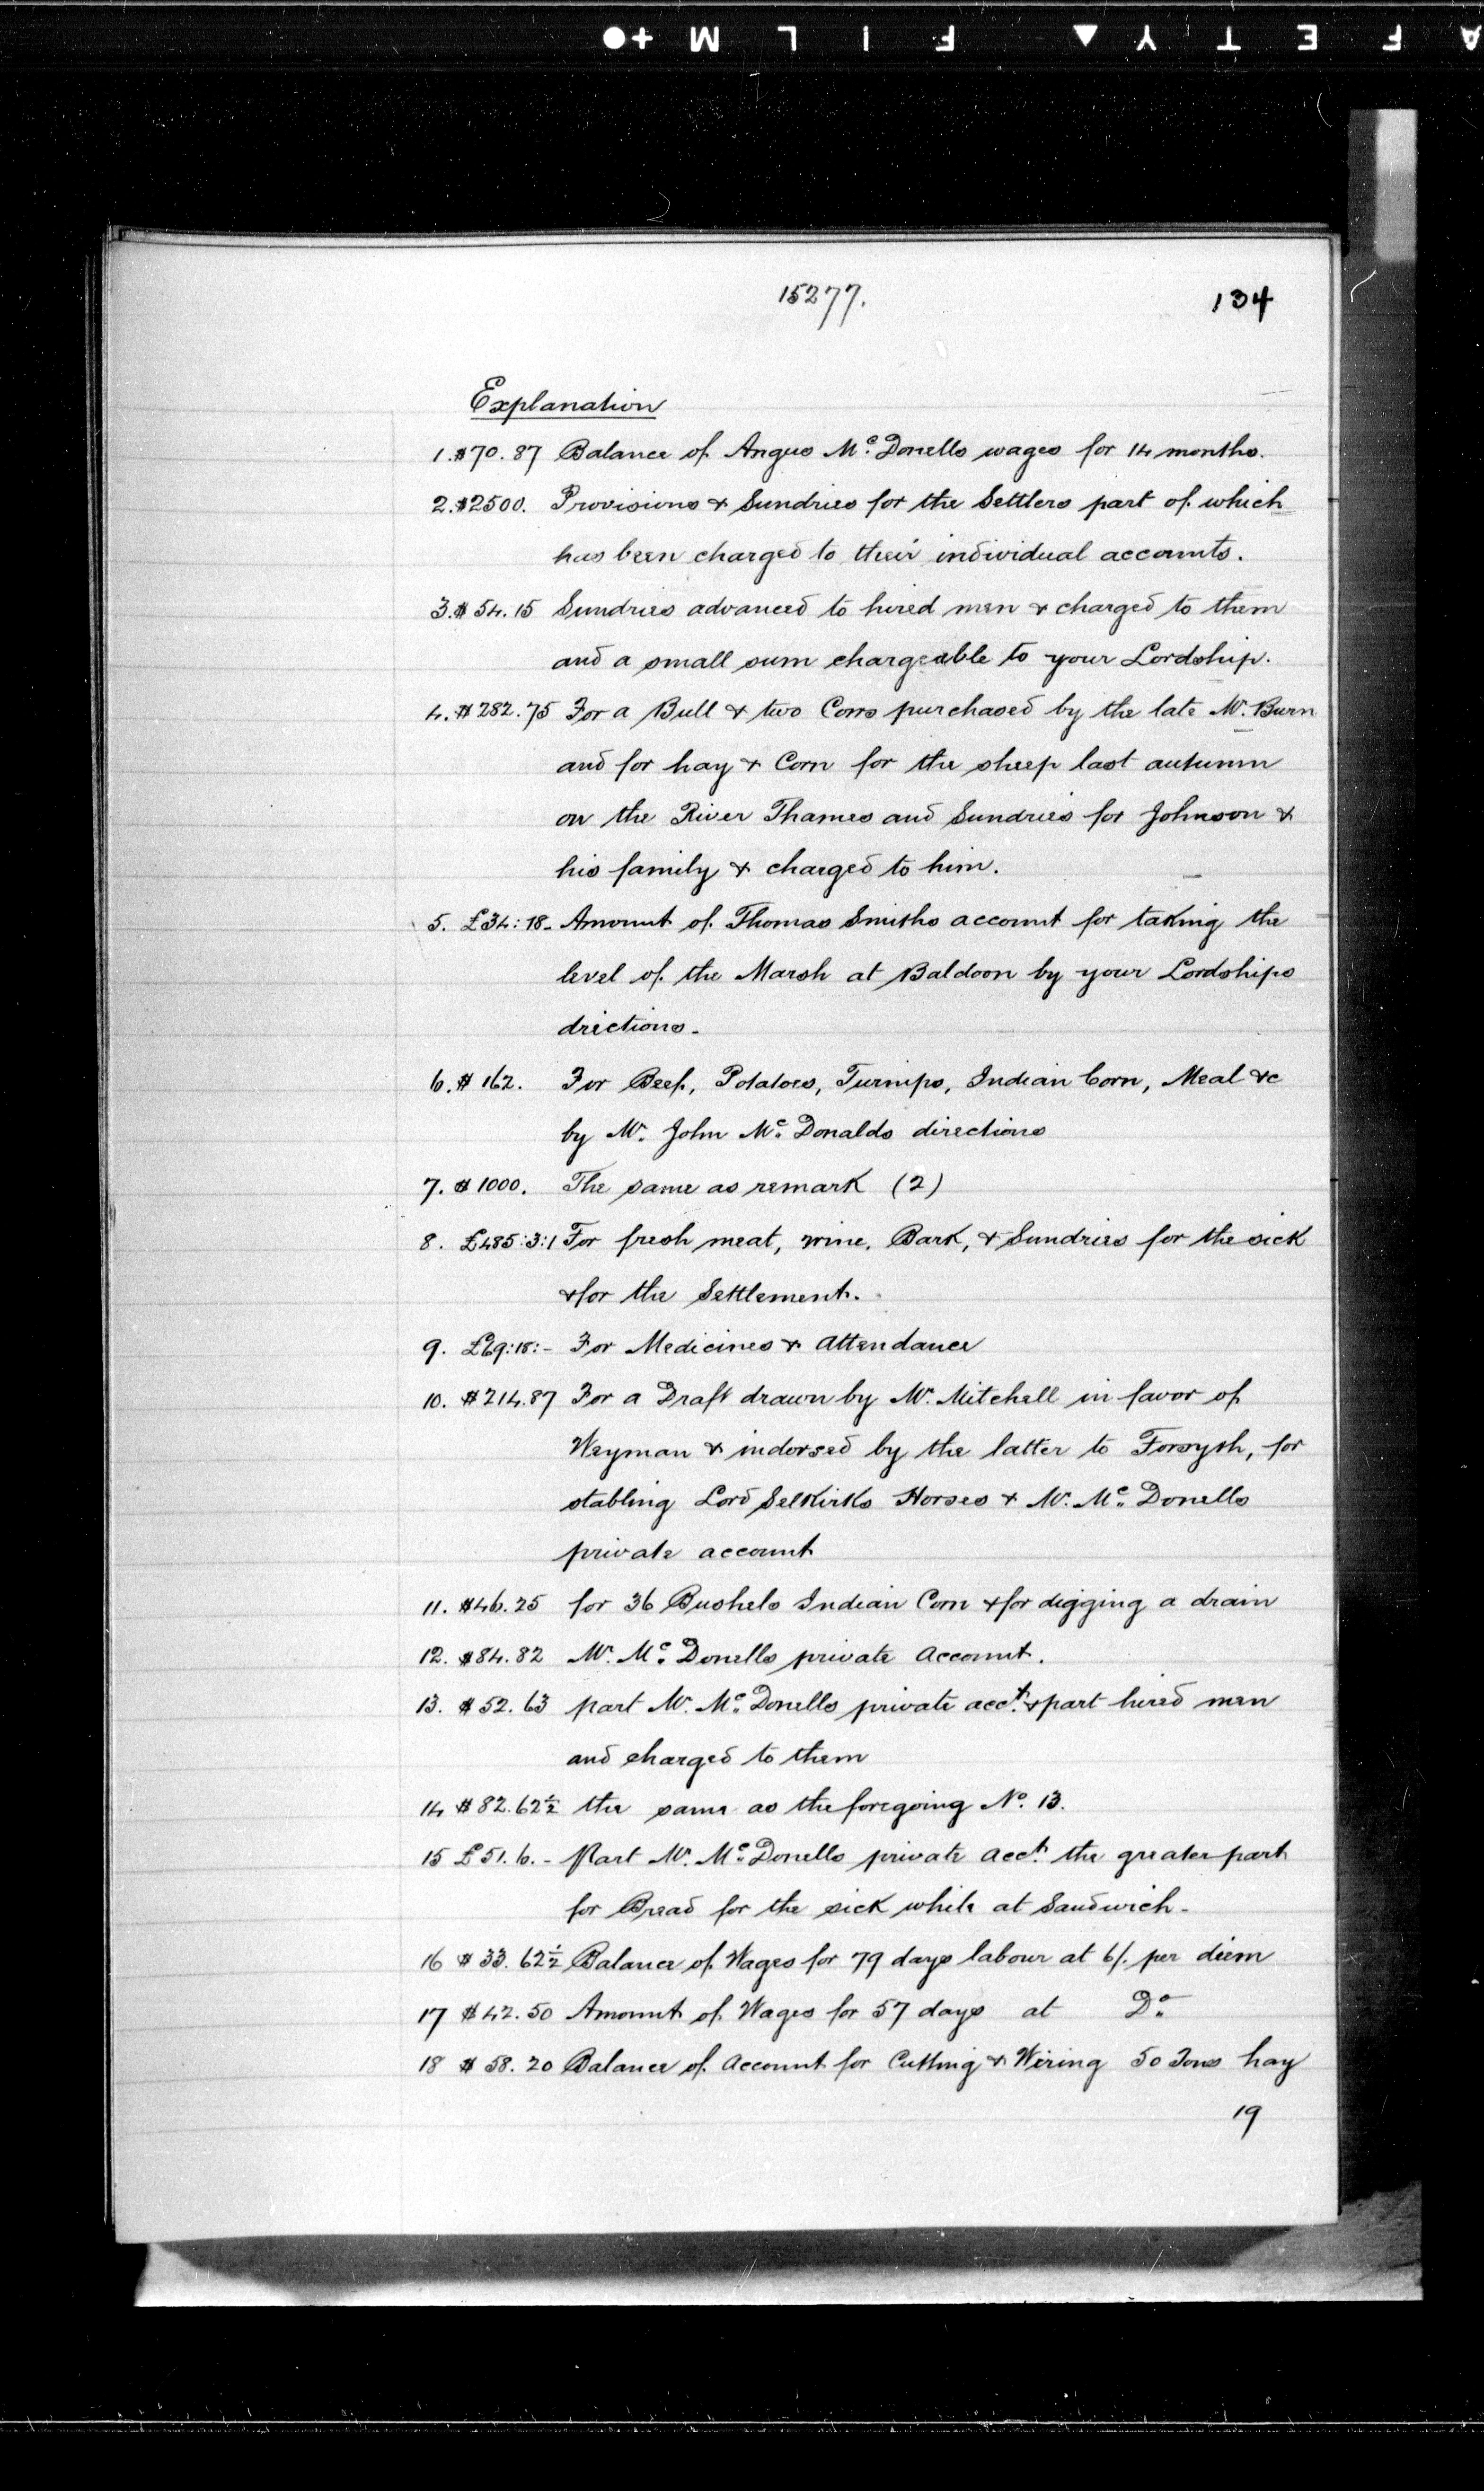 SAFETY ▲ FILM +●
15277.
134
Explanation
1. $70.87 Balance of Angus Mc Donells wages for 14 months.
2. $2500. Provisions & Sundries for the Settlers part of which
has been charged to their individual accounts.
3. $54.15 Sundries advanced to hired men & charged to them
and a small sum chargeable to your Lordship.
4. $282.75 For a Bull & two Cows purchased by the late Mr. Burn
and for hay & Corn for the sheep last autumn
on the River Thames and Sundries for Johnson &
his family & charged to him.
5. £34:18- Amount of Thomas Smiths account for taking the
level of the Marsh at Baldoon by your Lordships
drections-
6. $162. For Beef, Potatoes, Turnips, Indian Corn, Meal &c
by Mr. John Mc Donalds directions
7. $1000. The same as remark (2)
8. £485:3:1 For fresh meat, wine, Bark, & Sundries for the sick
& for the Settlement.
9. £69:18:- For Medicines & Attendance
10. $214.87 For a Draft drawn by Mr. Mitchell in favor of
Weyman & indorsed by the latter to Forsyth, for
stabling Lord Selkirks Horses & Mr. Mc Donells
private account
11. $46.25 for 36 Bushels Indian Corn & for digging a drain
12. $84.82 Mr. Mc Donells private Account.
13. $52.63 part Mr. Mc Donells private acct. & part hired men
and charged to them
14 $82.62½ the same as the foregoing No. 13.
15 £51.6.- Part Mr. Mc Donells private acct. the greater part
for Bread for the sick while at Sandwich-
16 $33.62½ Balance of Wages for 79 days labour at 6/. per diem
17 $42.50 Amount of Wages for 57 days at Do
18 $58.20 Balance of Account for Cutting & Wiring 50 Tons hay
19